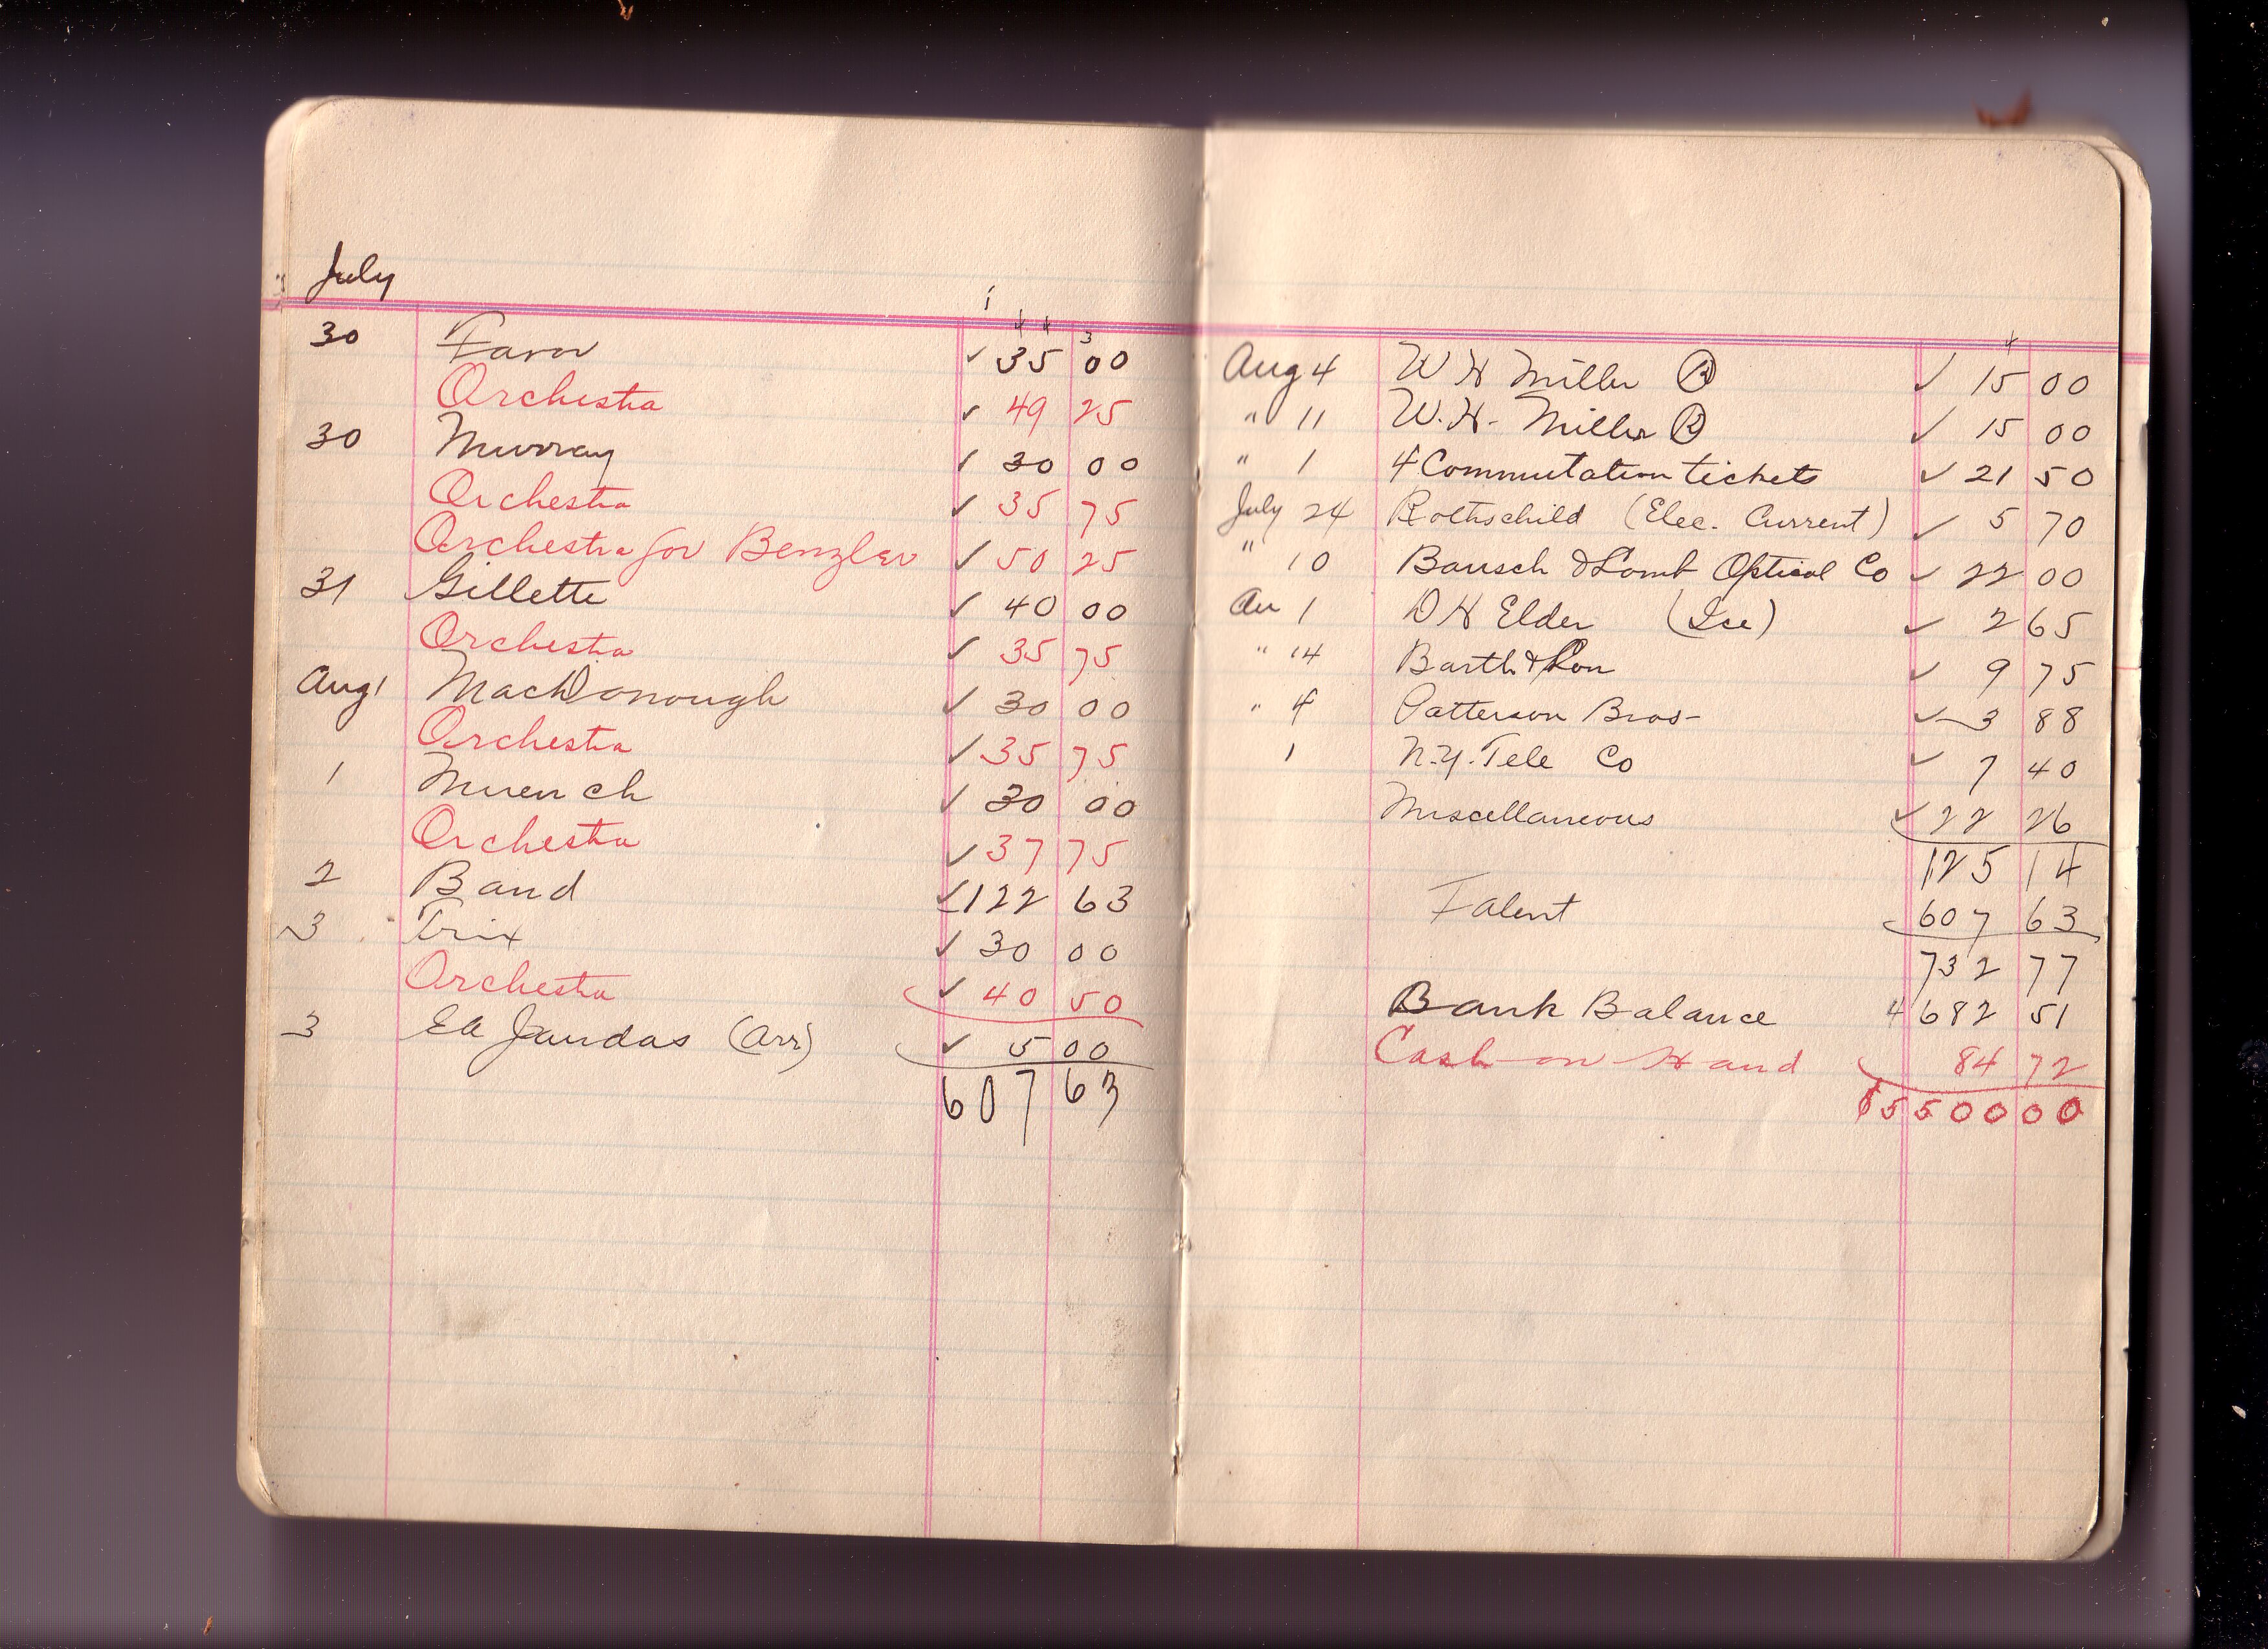 July
1
4 4 3
30 Favor ✓ 35 00
Orchestra ✓ 49 25
30 Murray ✓ 30 00
Orchestra ✓ 35 75
Orchestra for Benzler ✓ 50 25
31 Gillette ✓ 40 00
Orchestra ✓ 35 75
Aug 1 MacDonough ✓ 30 00
Orchestra ✓ 35 75
1 Muench ✓ 30 00
Orchestra ✓ 37 75
2 Band ✓ 122 63
3 Trix ✓ 30 00
Orchestra ✓ 40 50
3 Ed Jaudas (Arr) ✓ 5 00
607 63
4
Aug 4 W H Miller Ⓡ ✓ 15 00
" 11 W. H. Miller Ⓡ ✓ 15 00
" 1 4 Commutation tickets ✓ 21 50
July 24 Rothschild (Elec. Current) ✓ 5 70
" 10 Bausch & Lomb Optical Co ✓ 22 00
Au 1 D H Elder (Ice) ✓ 2 65
" 14 Barth & Son ✓ 9 75
" 4 Patterson Bros- ✓ 3 88
1 N.Y. Tele Co ✓ 7 40
Miscellaneous ✓ 22 26
125 14
Talent 607 63
732 77
Bank Balance 4682 51
Cash on Hand 84 72
$5500 00